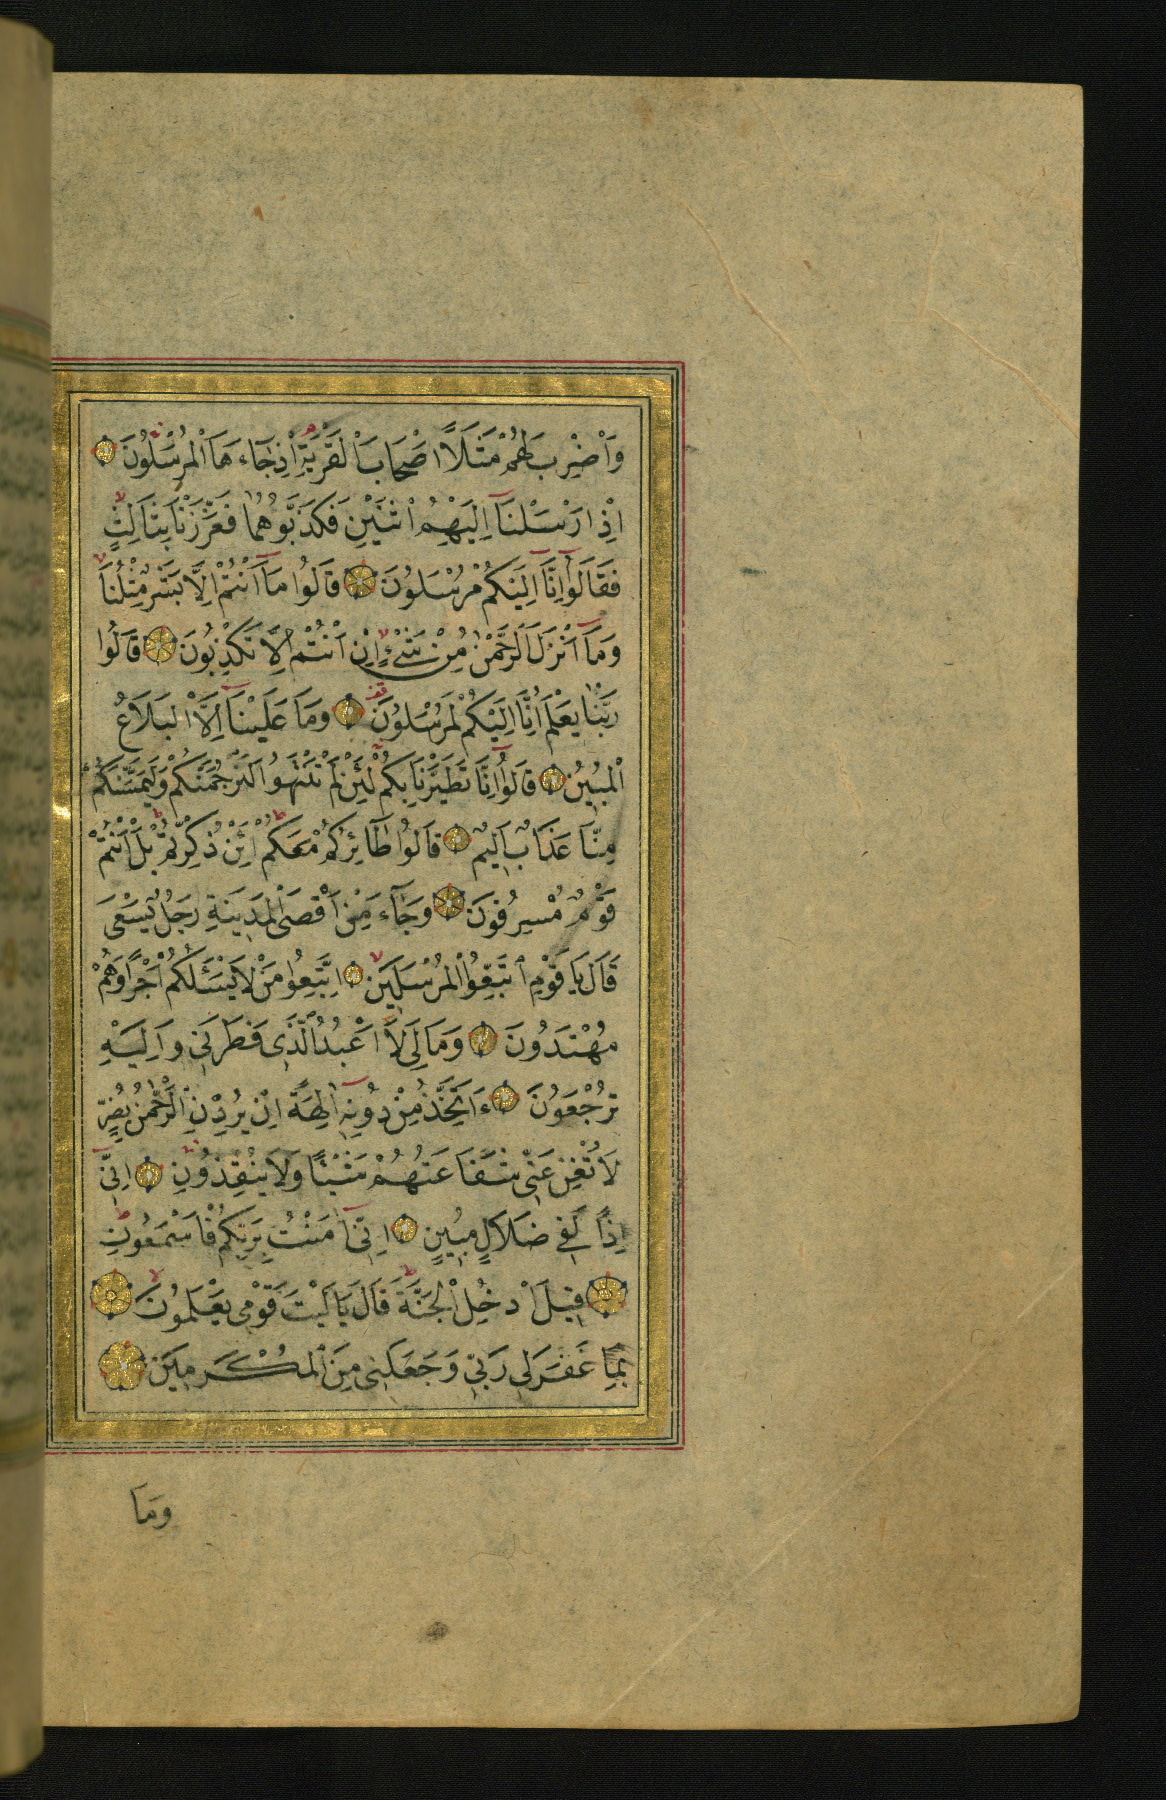 وَاضْرِبْ لَهُمْ مَثَلًا اَصْحَابَ الْقَرْيَةِ اِذْ جَاءَهَا الْمُرْسَلُونَ
اِذْ اَرْسَلْنَا اِلَيْهِمُ اثْنَيْنِ فَكَذَّبُوهُمَا فَعَزَّزْنَا بِثَالِثٍ
فَقَالُوا اِنَّا اِلَيْكُمْ مُرْسَلُونَ قَالُوا مَا اَنْتُمْ اِلَّا بَشَرٌ مِثْلُنَا
وَمَا اَنْزَلَ الرَّحْمٰنُ مِنْ شَيْءٍ اِنْ اَنْتُمْ اِلَّا تَكْذِبُونَ قَالُوا
رَبُّنَا يَعْلَمُ اِنَّا اِلَيْكُمْ لَمُرْسَلُونَ وَمَا عَلَيْنَا اِلَّا الْبَلَاغُ
الْمُبِينُ قَالُوا اِنَّا تَطَيَّرْنَا بِكُمْ لَئِنْ لَمْ تَنْتَهُوا لَنَرْجُمَنَّكُمْ وَلَيَمَسَّنَّكُمْ
مِنَّا عَذَابٌ اَلِيمٌ قَالُوا طَائِرُكُمْ مَعَكُمْ اَئِنْ ذُكِّرْتُمْ بَلْ اَنْتُمْ
قَوْمٌ مُسْرِفُونَ وَجَاءَ مِنْ اَقْصَى الْمَدِينَةِ رَجُلٌ يَسْعَى
قَالَ يَا قَوْمِ اتَّبِعُوا الْمُرْسَلِينَ اِتَّبِعُوا مَنْ لَا يَسْئَلُكُمْ اَجْرًا وَهُمْ
مُهْتَدُونَ وَمَا لِيَ لَا اَعْبُدُ الَّذِي فَطَرَنِي وَاِلَيْهِ
تُرْجَعُونَ ءَاَتَّخِذُ مِنْ دُونِهِ اٰلِهَةً اِنْ يُرِدْنِ الرَّحْمٰنُ بِضُرٍّ
لَا تُغْنِ عَنِّي شَفَاعَتُهُمْ شَيْئًا وَلَا يُنْقِذُونِ اِنِّي
اِذًا لَفِي ضَلَالٍ مُبِينٍ اِنِّي اٰمَنْتُ بِرَبِّكُمْ فَاسْمَعُونِ
قِيلَ ادْخُلِ الْجَنَّةَ قَالَ يَا لَيْتَ قَوْمِي يَعْلَمُونَ
بِمَا غَفَرَ لِي رَبِّي وَجَعَلَنِي مِنَ الْمُكْرَمِينَ
وَمَا